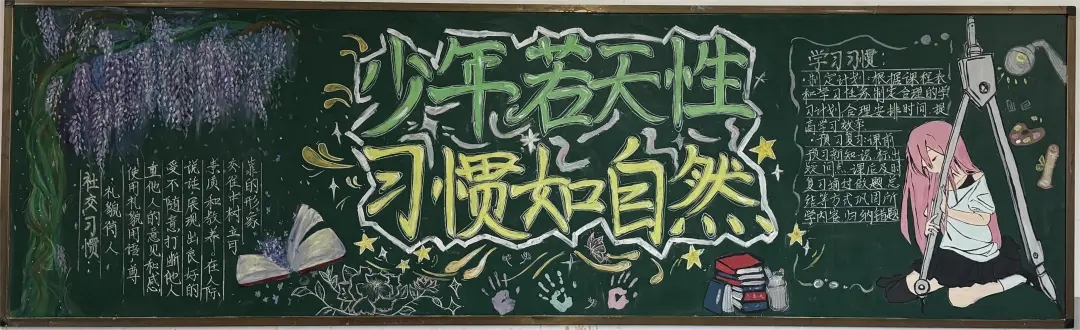 社交习惯：
礼貌待人
使用礼貌用语，尊
重他人的意见和感
受不随意打断他人
说话展现出良好的
素质和教养。在人际
交往中树立可
靠的形象
少年若天性
习惯如自然
学习习惯：
·制定计划：根据课程表
和学习任务制定合理的学
习计划合理安排时间 提
高学习效率
·预习复习：课前
预习新知识 标出
疑问点 课后及时
复习通过做题总
结等方式巩固所
学内容 归纳错题